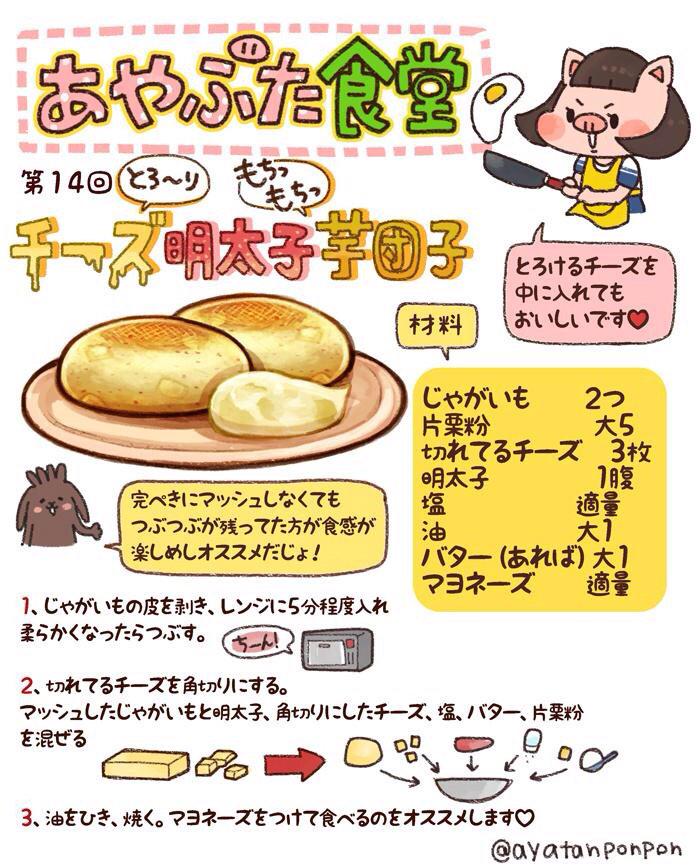 あやぶた食堂
第14回 とろ〜り もちっもちっ
チーズ明太子芋団子
とろけるチーズを
中に入れても
おいしいです♥
材料
じゃがいも 2つ
片栗粉 大5
切れてるチーズ 3枚
明太子 1腹
塩 適量
油 大1
バター(あれば) 大1
マヨネーズ 適量
完ぺきにマッシュしなくても
つぶつぶが残ってた方が食感が
楽しめしオススメだじょ!
1、じゃがいもの皮を剥き、レンジに5分程度入れ
柔らかくなったらつぶす。
ちーん!
2、切れてるチーズを角切りにする。
マッシュしたじゃがいもと明太子、角切りにしたチーズ、塩、バター、片栗粉
を混ぜる
3、油をひき、焼く。マヨネーズをつけて食べるのをオススメします♡
@ayatanponpon